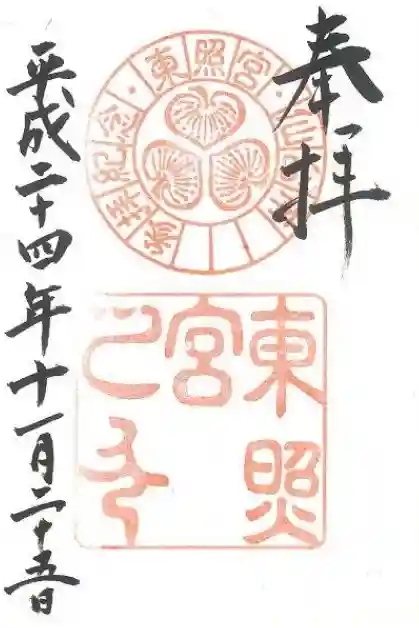 奉拝
東照宮
参拝紀念
東照
宮
之印
平成二十四年十一月二十五日